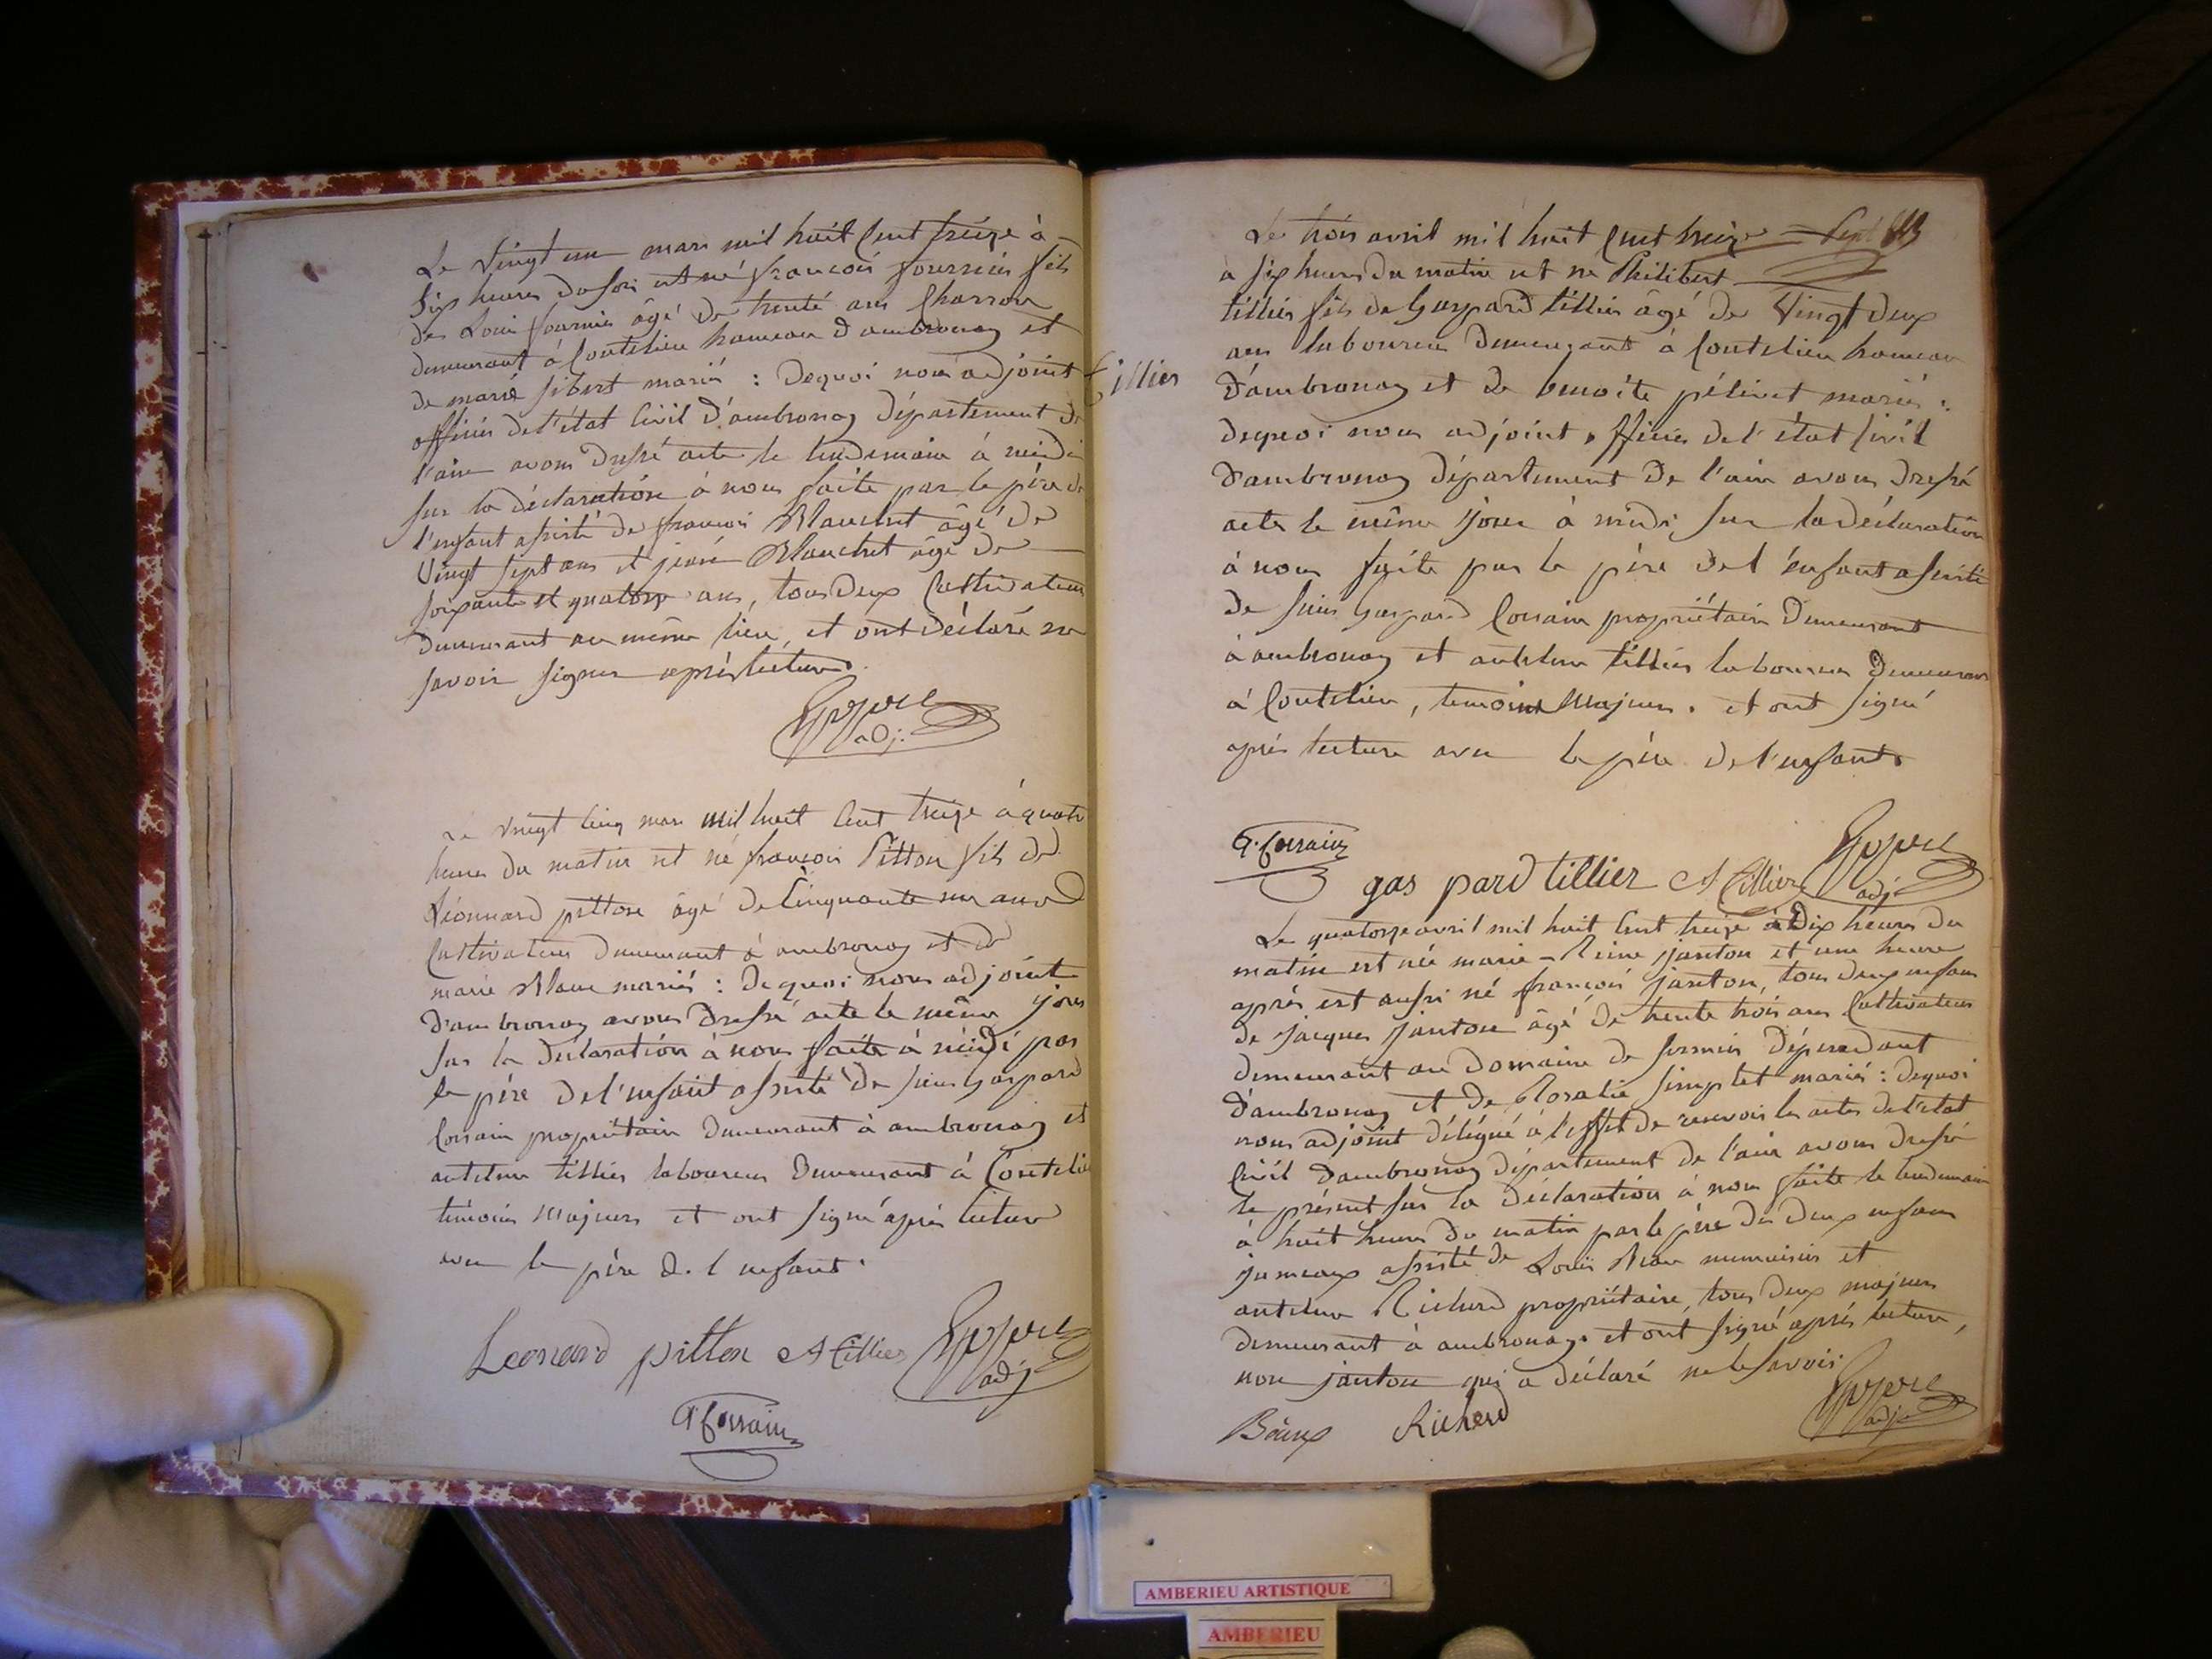 Le vingt un mars mil huit cent treize à
six heures du soir est né françois fournier fils
de Louis fournier âgé de trente ans Charron
demeurant à Coutelieu hameau d'ambronay et
de marie sibert mariés : dequoi nous adjoint
officier de l'état Civil d'ambronay département de
l'ain avons dressé acte le lendemain à midi
sur la déclaration à nous faite par le père de
l'enfant assisté de françois Blanchet âgé de
Vingt sept ans et Blanchet âgé de
soixante et quatorze ans, tous deux Cultivateurs
demeurant au même lieu, et ont déclaré ne
savoir signer après lecture.
adj.
Le vingt cinq mars mil huit Cent treize à quatre
heures du matin est né françois Pitton fils de
Léonnard pitton âgé de Cinquante un ans
Cultivateur demeurant à ambronay et de
marie Blanc mariés : de quoi nous adjoint
d'ambronay avons dressé acte le même jour
sur la déclaration à nous faite à midi par
le père de l'enfant assisté de sieur Gaspard
Corrain propriétaire demeurant à ambronay et
antelme tillier laboureur demeurant à Coutelieu
témoins majeurs et ont signé après lecture
avec le père de l'enfant.
Leonard pitton A tillier
adj
G. Corrain
tillier
Le trois avril mil huit Cent treize
à six heures du matin est né Philibert
tillier fils de Gaspard tillier âgé de Vingt deux
ans laboureur demeurant à Coutelieu hameau
d'ambronay et de benoite mariés :
dequoi nous adjoint officier de l'état Civil
d'ambronay département de l'ain avons dressé
acte le même jour à midi sur la déclaration
à nous faite par le père de l'enfant assisté
de sieur Gaspard Corrain propriétaire demeurant
à ambronay et antelme tillier laboureur demeurant
à Coutelieu, temoins Majeurs. et ont signé
après lecture avec le père de l'enfant.
G. Corrain
gas pard tillier A tillier
adj
Le quatorze avril mil huit Cent treize à Dix heures du
matin est née marie-Reine janton et une heure
après est aussi né françois janton, tous deux enfans
de jacques janton âgé de trente trois ans Cultivateur
demeurant au domaine de dépendant
d'ambronay et de Rosalie simplet mariés : dequoi
nous adjoint délégué à l'effet de recevoir les actes de l'état
Civil d'ambronay département de l'ain avons dressé
le présent sur la déclaration à nous faite le lendemain
à huit heures du matin par le père des deux enfans
jumeaux assisté de Louis et
antelme Richard propriétaire, tous deux majeurs
demeurant à ambronay. et ont signé après lecture,
non janton qui a déclaré ne le savoir
Richard
adj.
AMBERIEU ARTISTIQUE
AMBERIEU